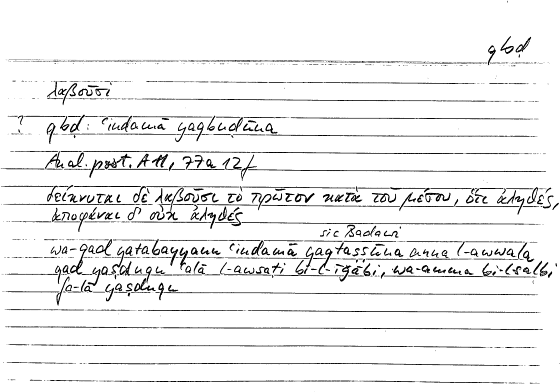 qbḍ
λαβοῦσι
? qbḍ: ʿindamā yaqbuḍūna
Anal. post. A 11, 77a 12f
δείκνυται δὲ λαβοῦσι τὸ πρῶτον κατὰ τοῦ μέσου, ὅτι ἀληθές,
ἀποφάναι δ' οὐκ ἀληθές
sic Badawi
wa-qad yatabayyanu ʿindamā yaqtaṣṣūna anna l-awwala
qad yaṣduqu ʿalā l-awsaṭi bi-l-īǧābi, wa-amma bi-l-salbi
fa-lā yaṣduqu